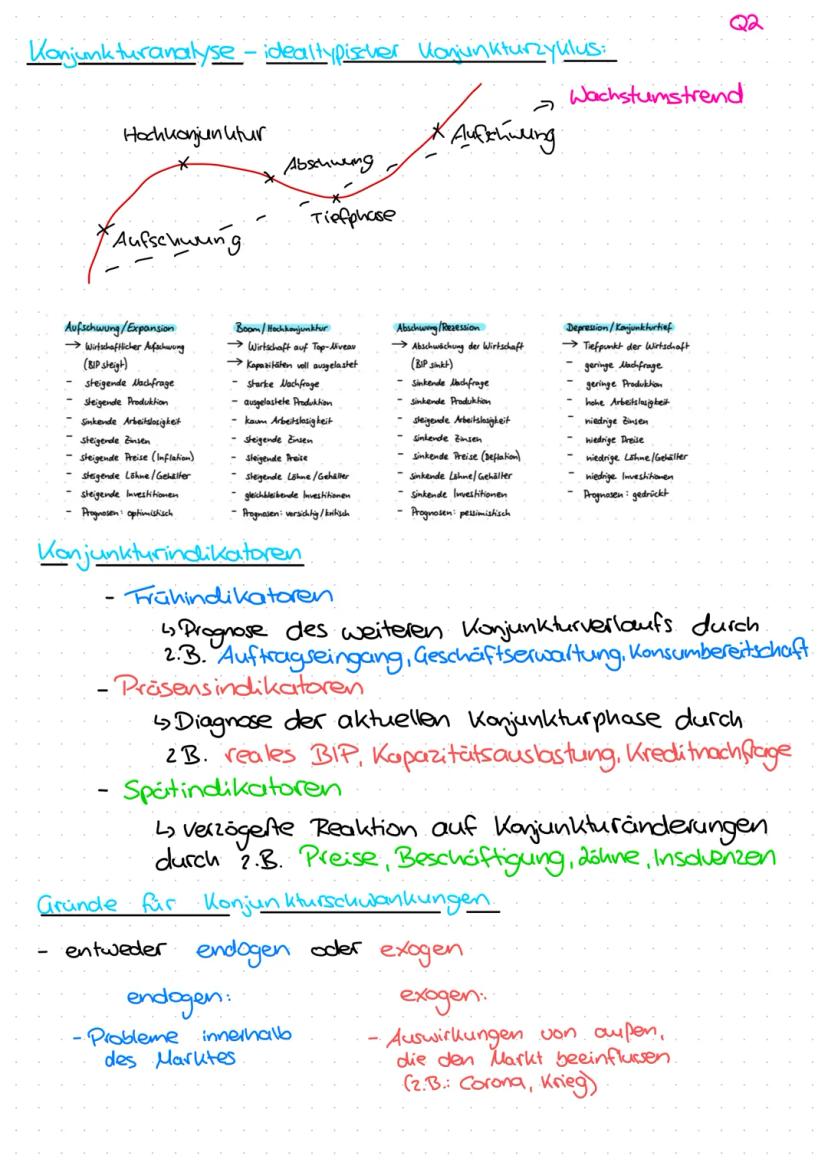 Q2
Konjunkturanalyse – idealtypischer Konjunkturzyklus:
Wachstumstrend
Hochkonjunktur
Aufschwung
Abschwung
Tiefphase
Aufschwung
Aufschwung/Expansion
→ Wirtschaftlicher Aufschwung
(BIP steigt)
- steigende Nachfrage
- steigende Produktion
- sinkende Arbeitslosigkeit
- steigende Zinsen
- steigende Preise (Inflation)
- steigende Löhne/Gehälter
- steigende Investitionen
- Prognosen: optimistisch
Boom/Hochkonjunktur
→ Wirtschaft auf Top-Niveau
→ Kapazitäten voll ausgelastet
- starke Nachfrage
- ausgelastete Produktion
- kaum Arbeitslosigkeit
- steigende Zinsen
- steigende Preise
- steigende Löhne/Gehälter
- gleichbleibende Investitionen
- Prognosen: vorsichtig/kritisch
Abschwung/Rezession
→ Abschwächung der Wirtschaft
(BIP sinkt)
- sinkende Nachfrage
- sinkende Produktion
- steigende Arbeitslosigkeit
- sinkende Zinsen
- sinkende Preise (Deflation)
- sinkende Löhne/Gehälter
- sinkende Investitionen
- Prognosen: pessimistisch
Depression/Konjunkturtief
→ Tiefpunkt der Wirtschaft
- geringe Nachfrage
- geringe Produktion
- hohe Arbeitslosigkeit
- niedrige Zinsen
- niedrige Preise
- niedrige Löhne/Gehälter
- niedrige Investitionen
- Prognosen: gedrückt
Konjunkturindikatoren
- Frühindikatoren
↳ Prognose des weiteren Konjunkturverlaufs durch
z.B. Auftragseingang, Geschäftserwartung, Konsumbereitschaft
- Präsensindikatoren
↳ Diagnose der aktuellen Konjunkturphase durch
z B. reales BIP, Kapazitätsauslastung, Kreditnachfrage
- Spätindikatoren
↳ verzögerte Reaktion auf Konjunkturänderungen
durch z.B. Preise, Beschäftigung, Löhne, Insolvenzen
Gründe für Konjunkturschwankungen
- entweder endogen oder exogen
endogen:
- Probleme innerhalb
des Marktes
exogen:
- Auswirkungen von außen,
die den Markt beeinflussen
(z.B.: Corona, Krieg)